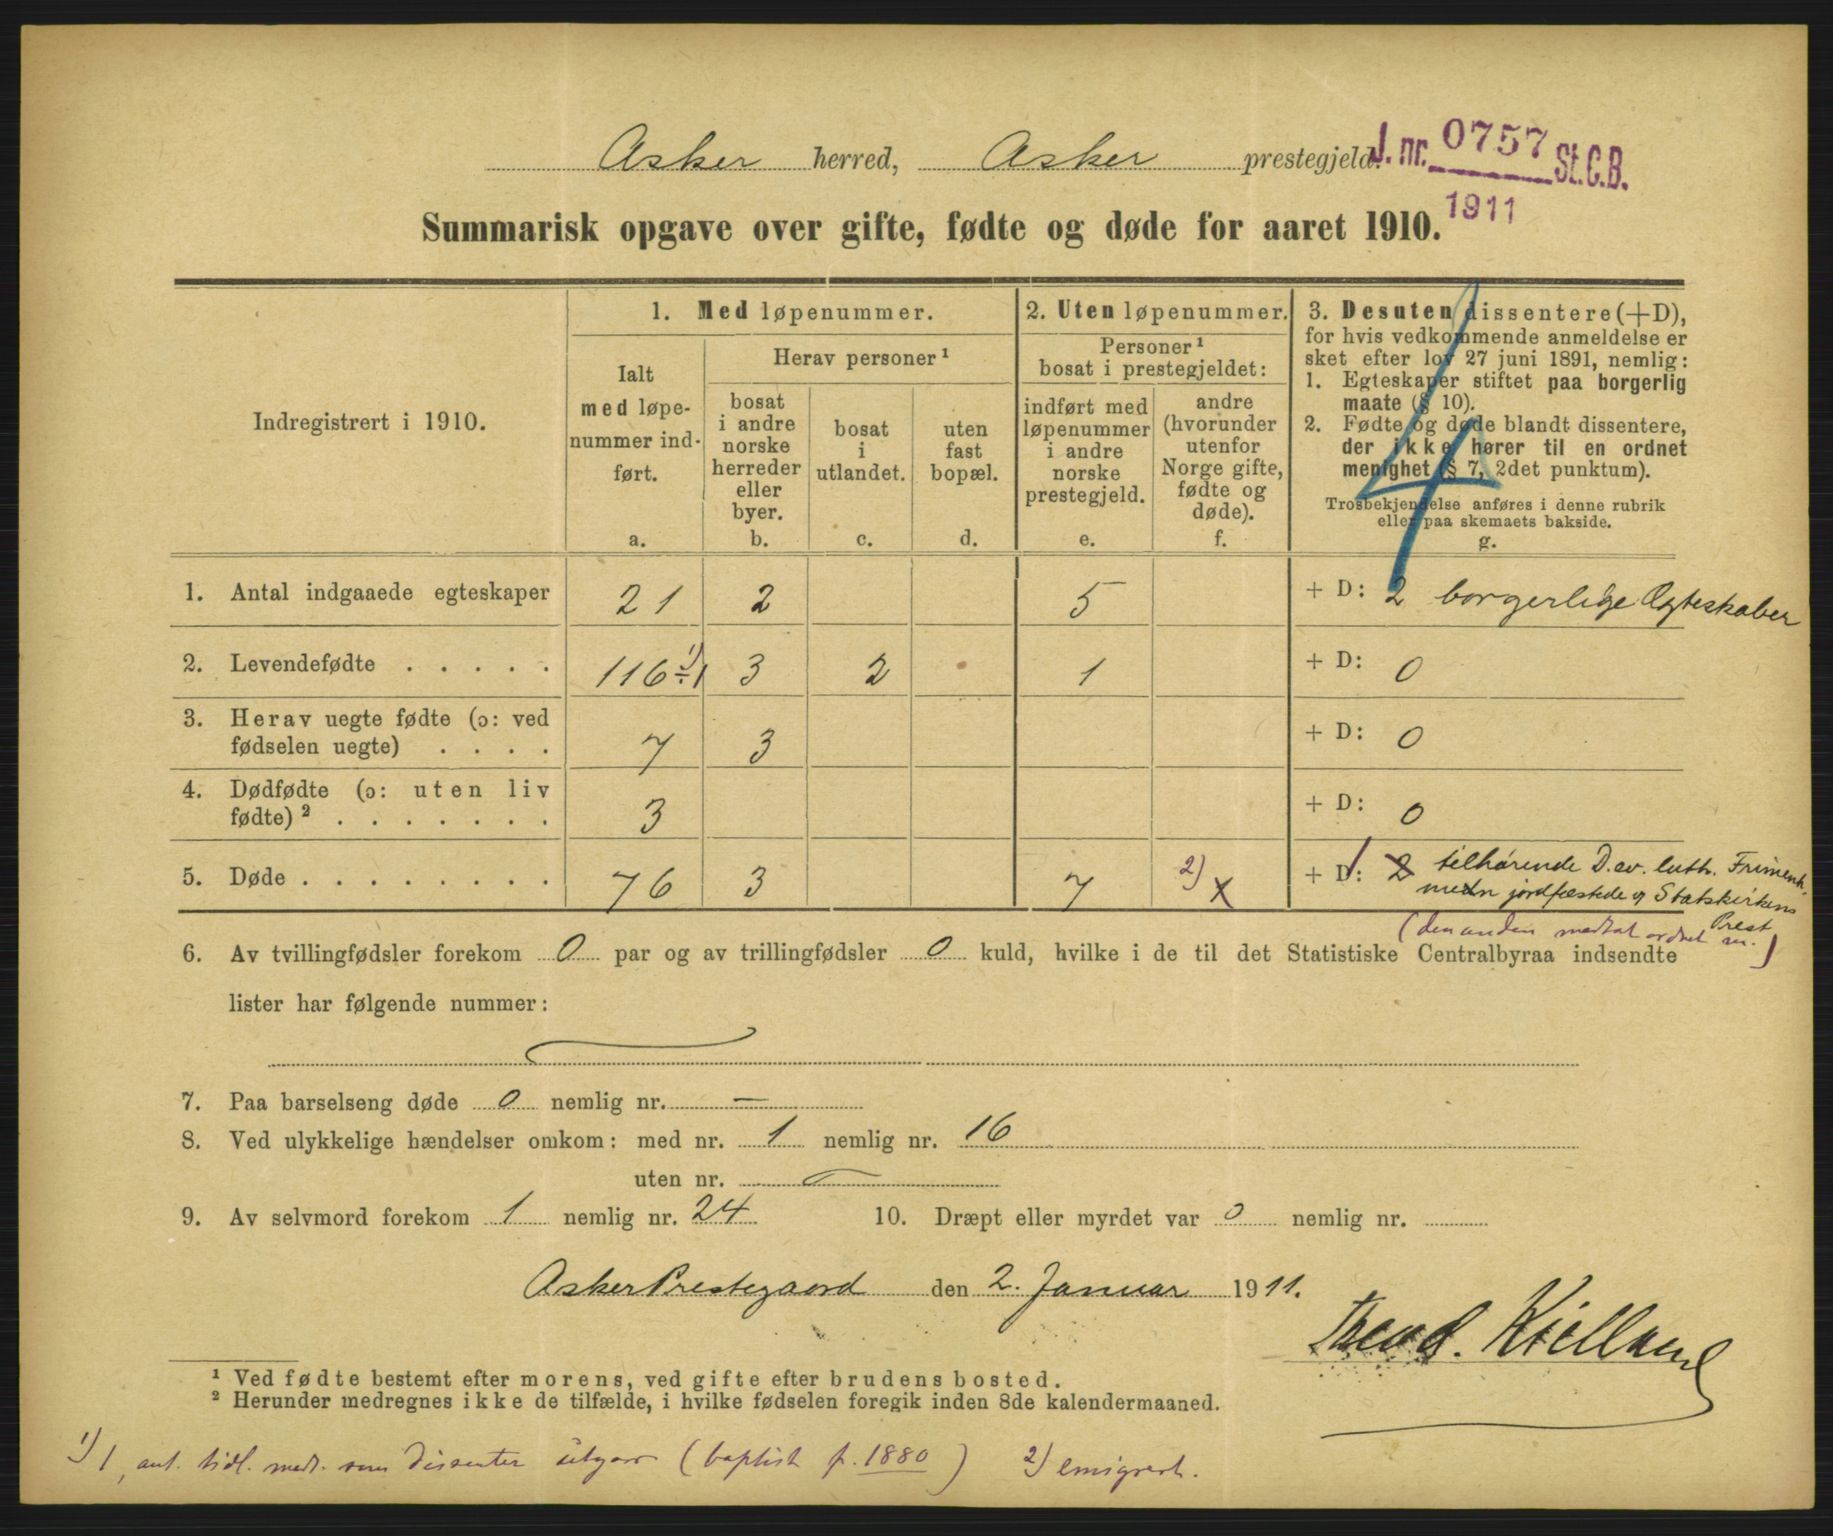 Asker herred, Asker prestegjeld.
J. nr. 0757 St.C.B.
1911
Summarisk opgave over gifte, fødte og døde for aaret 1910.
Indregistrert i 1910.
1. Med løpenummer.
Ialt
med løpe-
nummer ind-
ført.
a.
Herav personer ¹
bosat
i andre
norske
herreder
eller
byer.
b.
bosat
i
utlandet.
c.
uten
fast
bopæl.
d.
2. Uten løpenummer.
Personer ¹
bosat i prestegjeldet:
indført med
løpenummer
i andre
norske
prestegjeld.
e.
andre
(hvorunder
utenfor
Norge gifte,
fødte og
døde).
f.
3. Desuten dissentere (+D),
for hvis vedkommende anmeldelse er
sket efter lov 27 juni 1891, nemlig:
1. Egteskaper stiftet paa borgerlig
maate (§ 10).
2. Fødte og døde blandt dissentere,
der ikke hører til en ordnet
menighet (§ 7, 2det punktum).
Trosbekjendelse anføres i denne rubrik
eller paa skemaets bakside.
g.
4
1. Antal indgaaede egteskaper 21 2 5 + D: 2 borgerlige Ægteskaber
2. Levendefødte . . . . . 116 ÷1 1) 3 2 1 + D: 0
3. Herav uegte fødte (ɔ: ved
fødselen uegte) . . . . 7 3 + D: 0
4. Dødfødte (ɔ: uten liv
fødte) ² . . . . . . . 3 + D: 0
5. Døde . . . . . . . . 76 3 7 2) x + D: 1 2 tilhørende D. ev. luth. Frimenh.
men jordfæstede af Statskirkens
Prest
(den anden medtat ordnet m.)
6. Av tvillingfødsler forekom 0 par og av trillingfødsler 0 kuld, hvilke i de til det Statistiske Centralbyraa indsendte
lister har følgende nummer:
7. Paa barselseng døde 0 nemlig nr. —
8. Ved ulykkelige hændelser omkom: med nr. 1 nemlig nr. 16
uten nr. —
9. Av selvmord forekom 1 nemlig nr. 24 10. Dræpt eller myrdet var 0 nemlig nr.
Asker Prestegaard den 2. Januar 1911.
Theod. Kielland
¹ Ved fødte bestemt efter morens, ved gifte efter brudens bosted.
² Herunder medregnes ikke de tilfælde, i hvilke fødselen foregik inden 8de kalendermaaned.
1) 1, ant. tidl. medt. som Dissenter utgaar (baptist f. 1880) 2) emigrert.